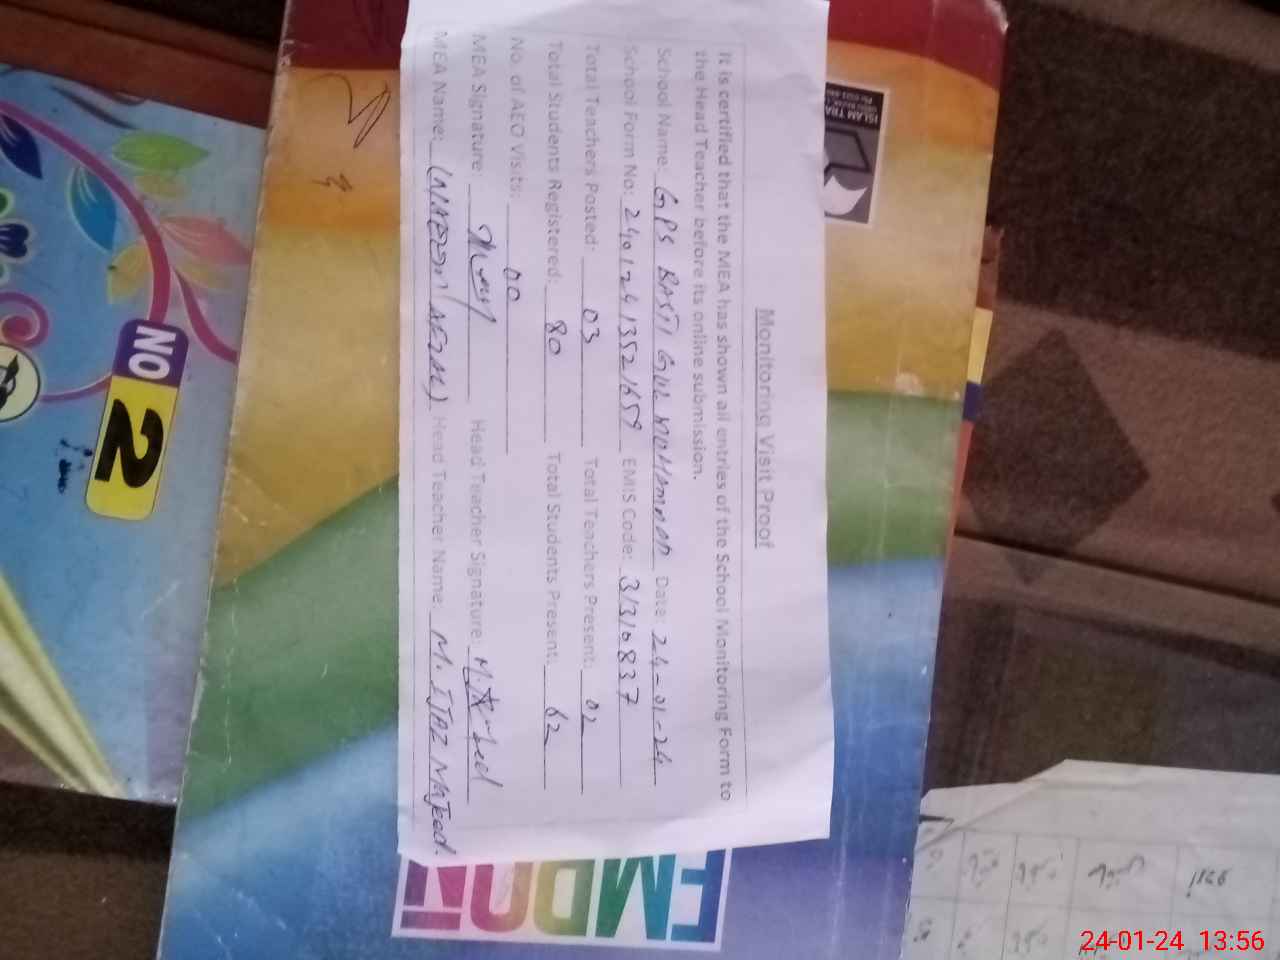 Monitoring Visit Proof
It is certified that the MEA has shown all entries of the School Monitoring Form to
the Head Teacher before its online submission.
School Name: GPS BASTI GUL MUHAMMAD Date: 24-01-24
School Form No: 24012413521659 EMIS Code: 31310837
Total Teachers Posted: 03 Total Teachers Present: 02
Total Students Registered: 80 Total Students Present: 62
No. of AEO Visits: 00
MEA Signature: Head Teacher Signature:
MEA Name: Head Teacher Name: M. IJAZ MAJEED.
NO 2
ISLAM TRA
24-01-24 13:56